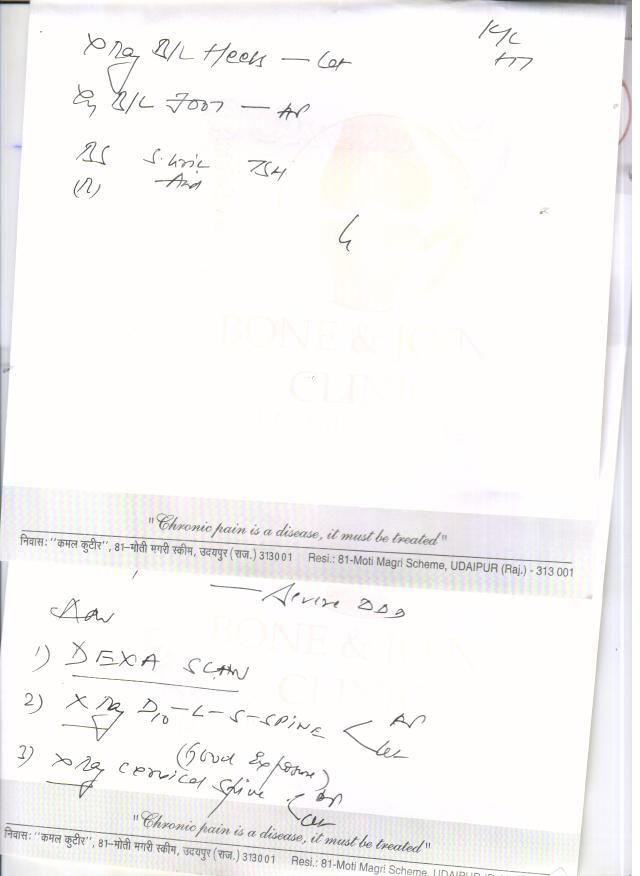 X Ray B/L Heels — Lat
K/C
B/L Foot — AP
BS S. Uric TSH
(R) Acid
BONE & JOIN
CLINI
"Chronic pain is a disease, it must be treated"
निवास: "कमल कुटीर", 81–मोती मगरी स्कीम, उदयपुर (राज.) 313001 Resi.: 81-Moti Magri Scheme, UDAIPUR (Raj.) - 313 001
Adv
BONE & JOIN
1) DEXA SCAN
2) X Ray D10-L-S-SPINE < AP
Lat
(Good Exposure)
3) X Ray cervical spine < AP
Lat
"Chronic pain is a disease, it must be treated"
निवास: "कमल कुटीर", 81–मोती मगरी स्कीम, उदयपुर (राज.) 313001 Resi.: 81-Moti Magri Scheme, UDAIPUR